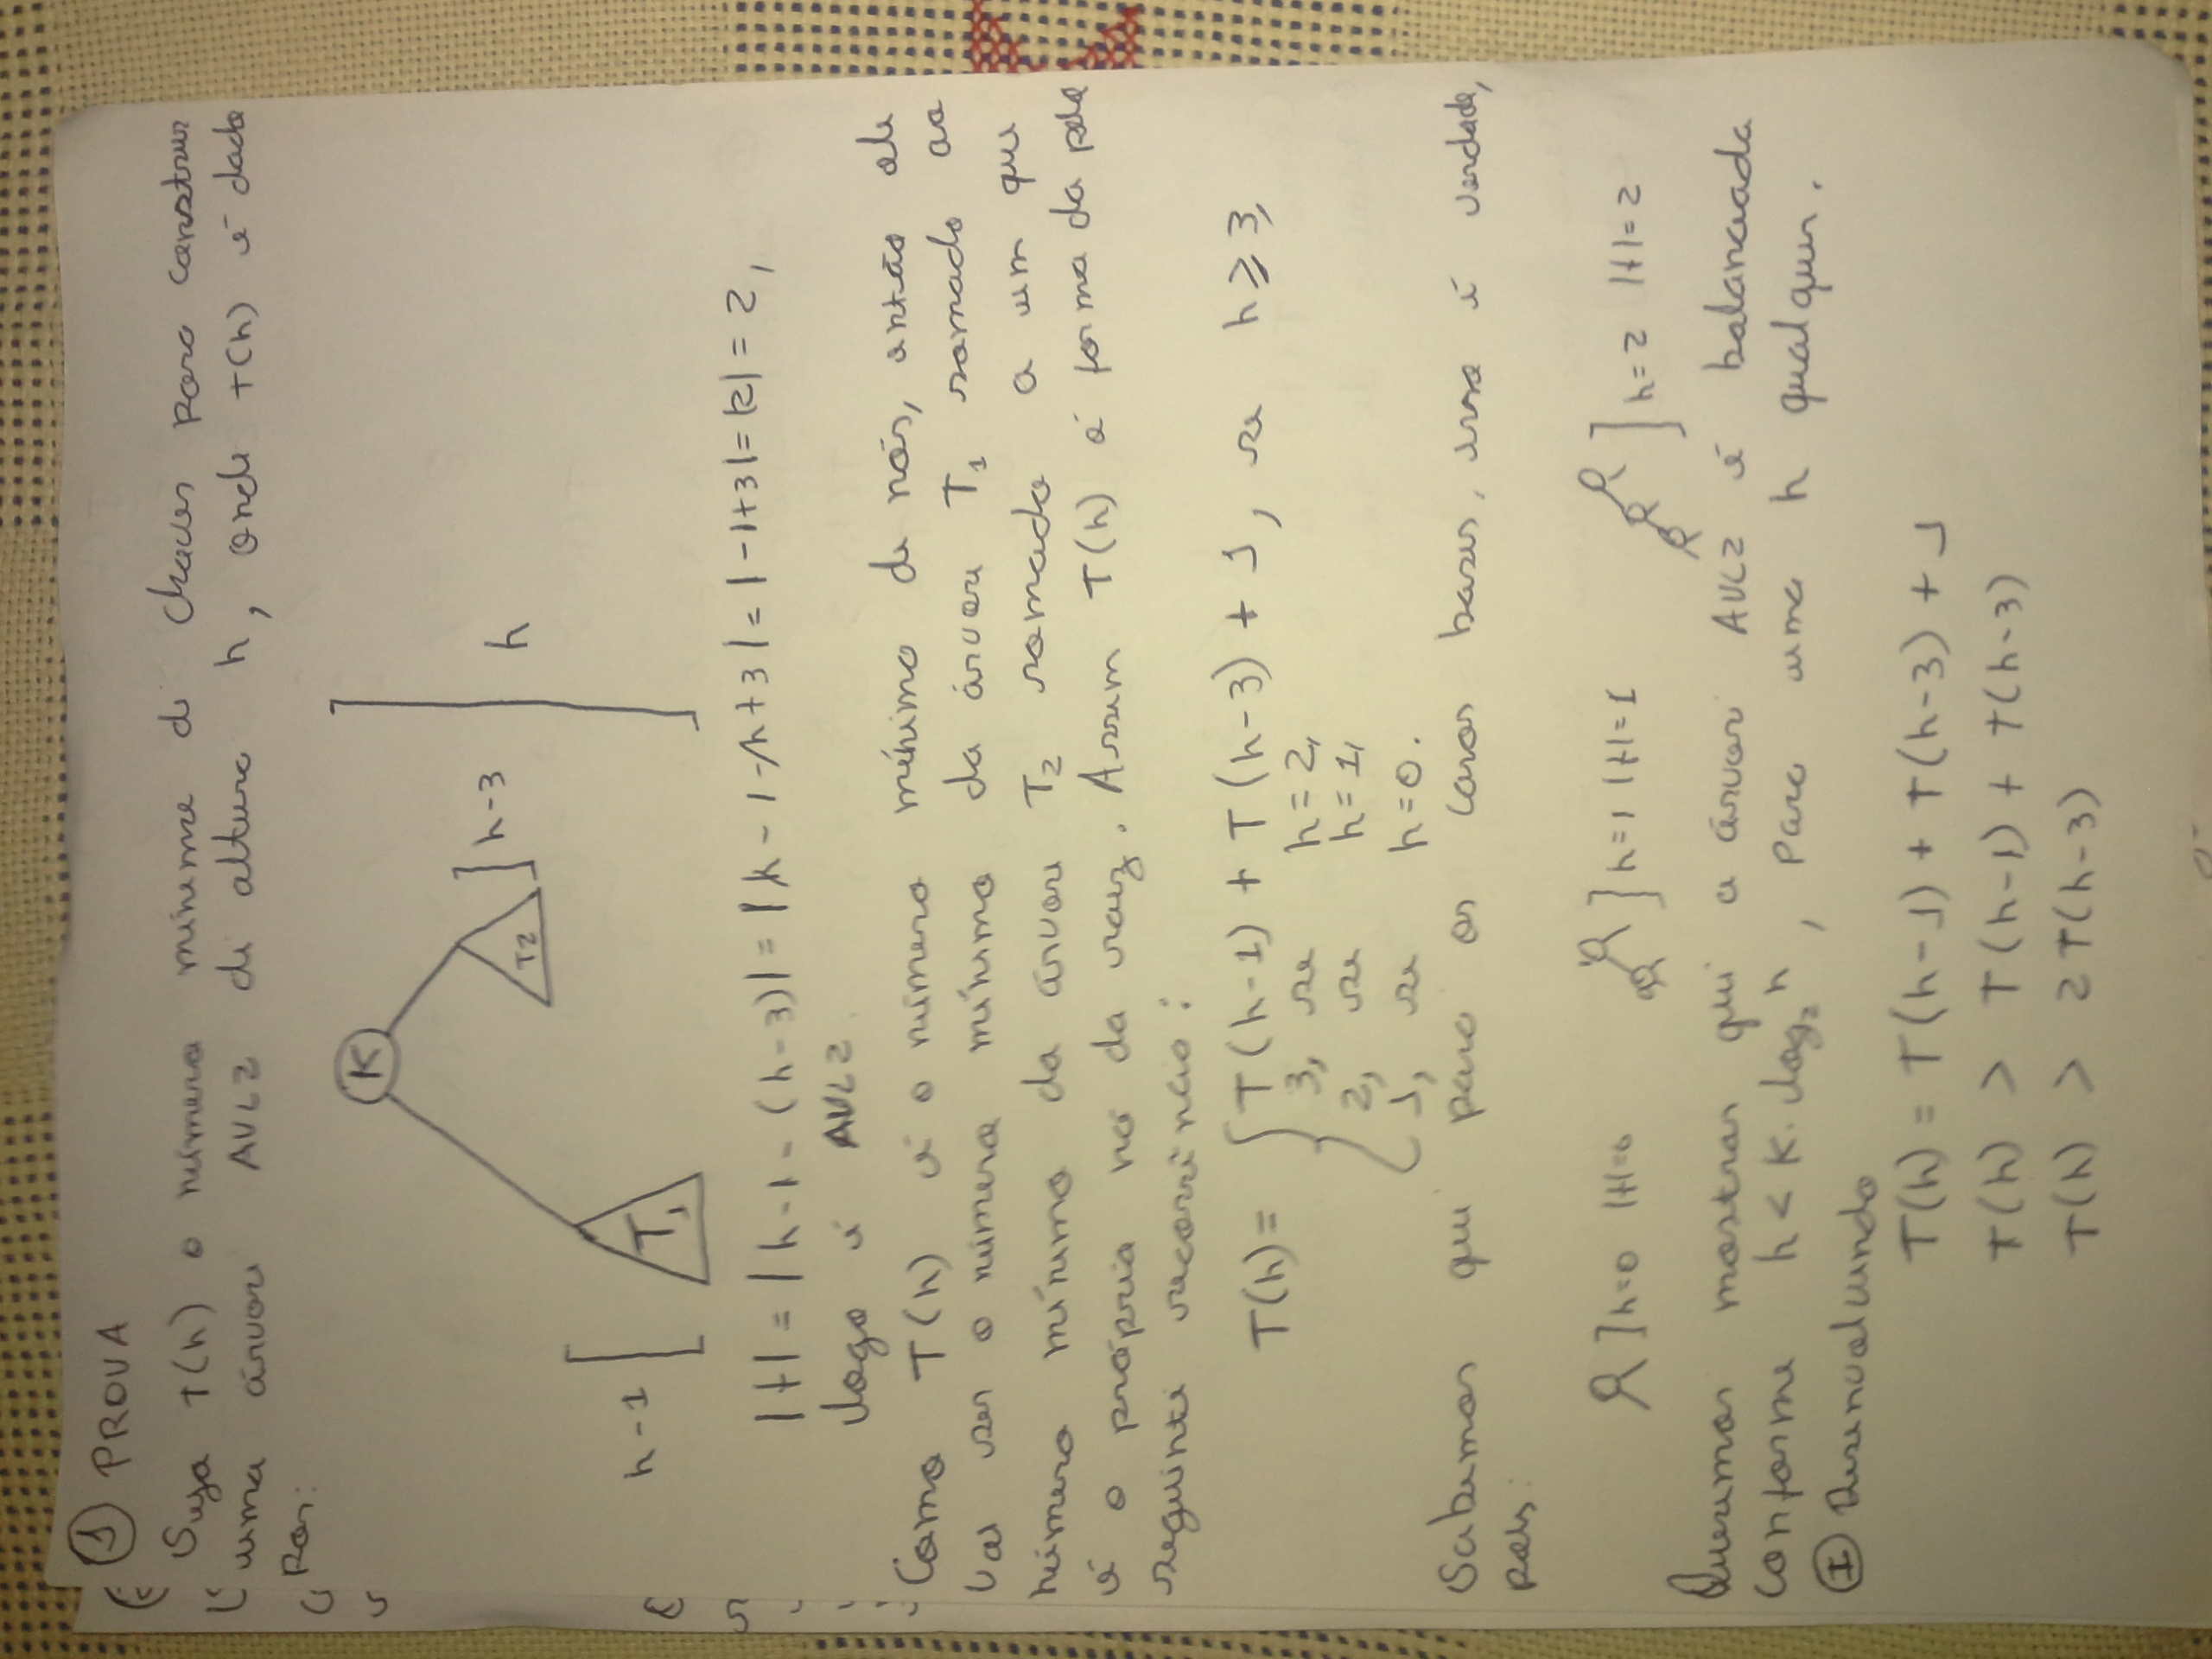 ① PROVA
Seja T(h) o número mínimo de chaves para construir
uma árvore AVL2 de altura h, onde T(h) é dada
por:
K
T1
T2
h-1
h-3
h
|f| = |h-1-(h-3)| = |h-1-h+3| = |-1+3| = |2| = 2,
Logo é AVL2.
Como T(h) é o número mínimo de nós, então ele
vai ser o número mínimo da árvore T1 somado ao
número mínimo da árvore T2 somado a um que
é o próprio nó da raiz. Assim T(h) é forma da pela
seguinte recorrência:
T(h) = { T(h-1) + T(h-3) + 1, se h ≥ 3,
3, se h=2,
2, se h=1,
1, se h=0.
Sabemos que para os casos bases, isso é verdade,
pois:
h=0 |f|=0 h=1 |f|=1 h=2 |f|=2
Queremos mostrar que a árvore AVL2 é balanceada
conforme h < K. log₂ n, para uma h qualquer.
① Desenvolvendo
T(h) = T(h-1) + T(h-3) + 1
T(h) > T(h-1) + T(h-3)
T(h) > 2T(h-3)